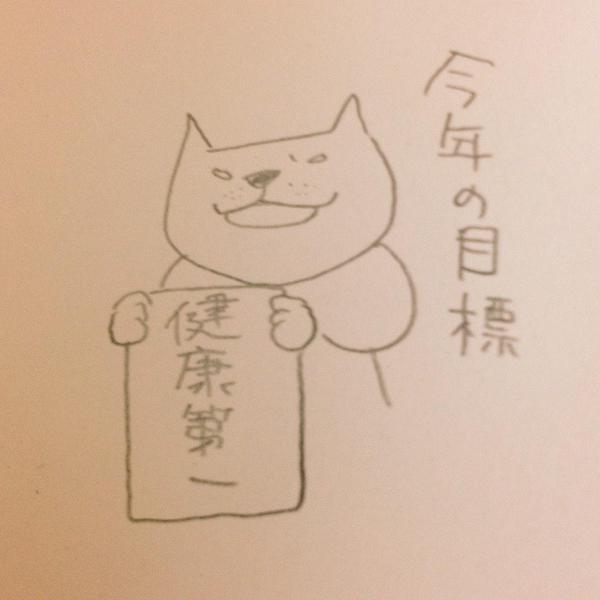 今年の目標
健康第一